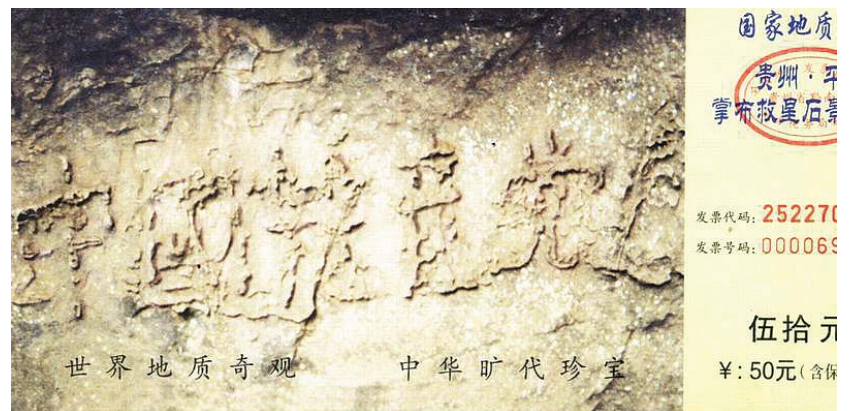 中國共产党
世界地质奇观 中华旷代珍宝
国家地质
贵州·平
掌布救星石景
发票代码: 252270
发票号码: 000069
伍拾元
¥: 50元(含保